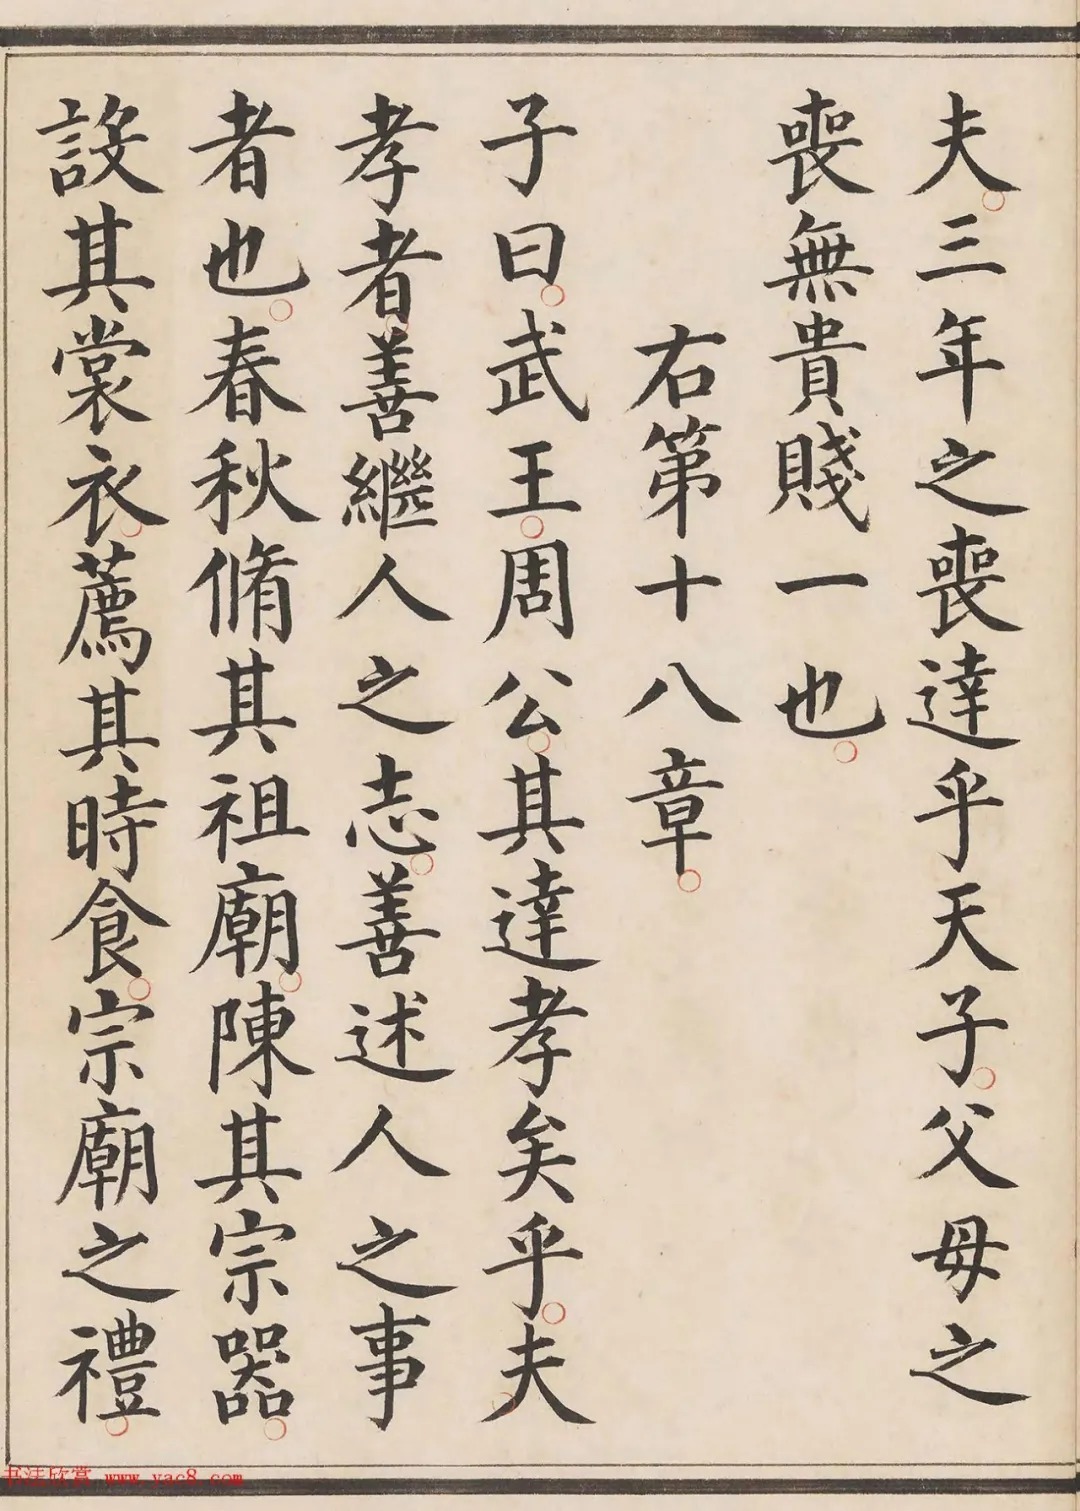 夫三年之喪達乎天子父母之
喪無貴賤一也
右第十八章
子曰武王周公其達孝矣乎夫
孝者善繼人之志善述人之事
者也春秋脩其祖廟陳其宗器
設其裳衣薦其時食宗廟之禮
书法欣赏 www.yac8.com